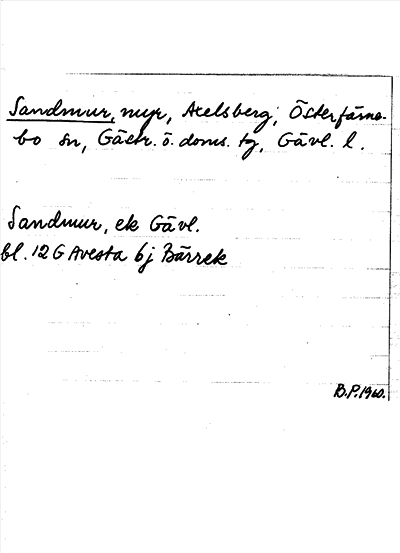 Sandmur, myr, Axelsberg, Österfärne-
bo sn, Gästr. ö. doms. tg, Gävl. l.
Sandmur, ek Gävl.
bl. 12 G Avesta bj Bärrek
B.P. 1960.